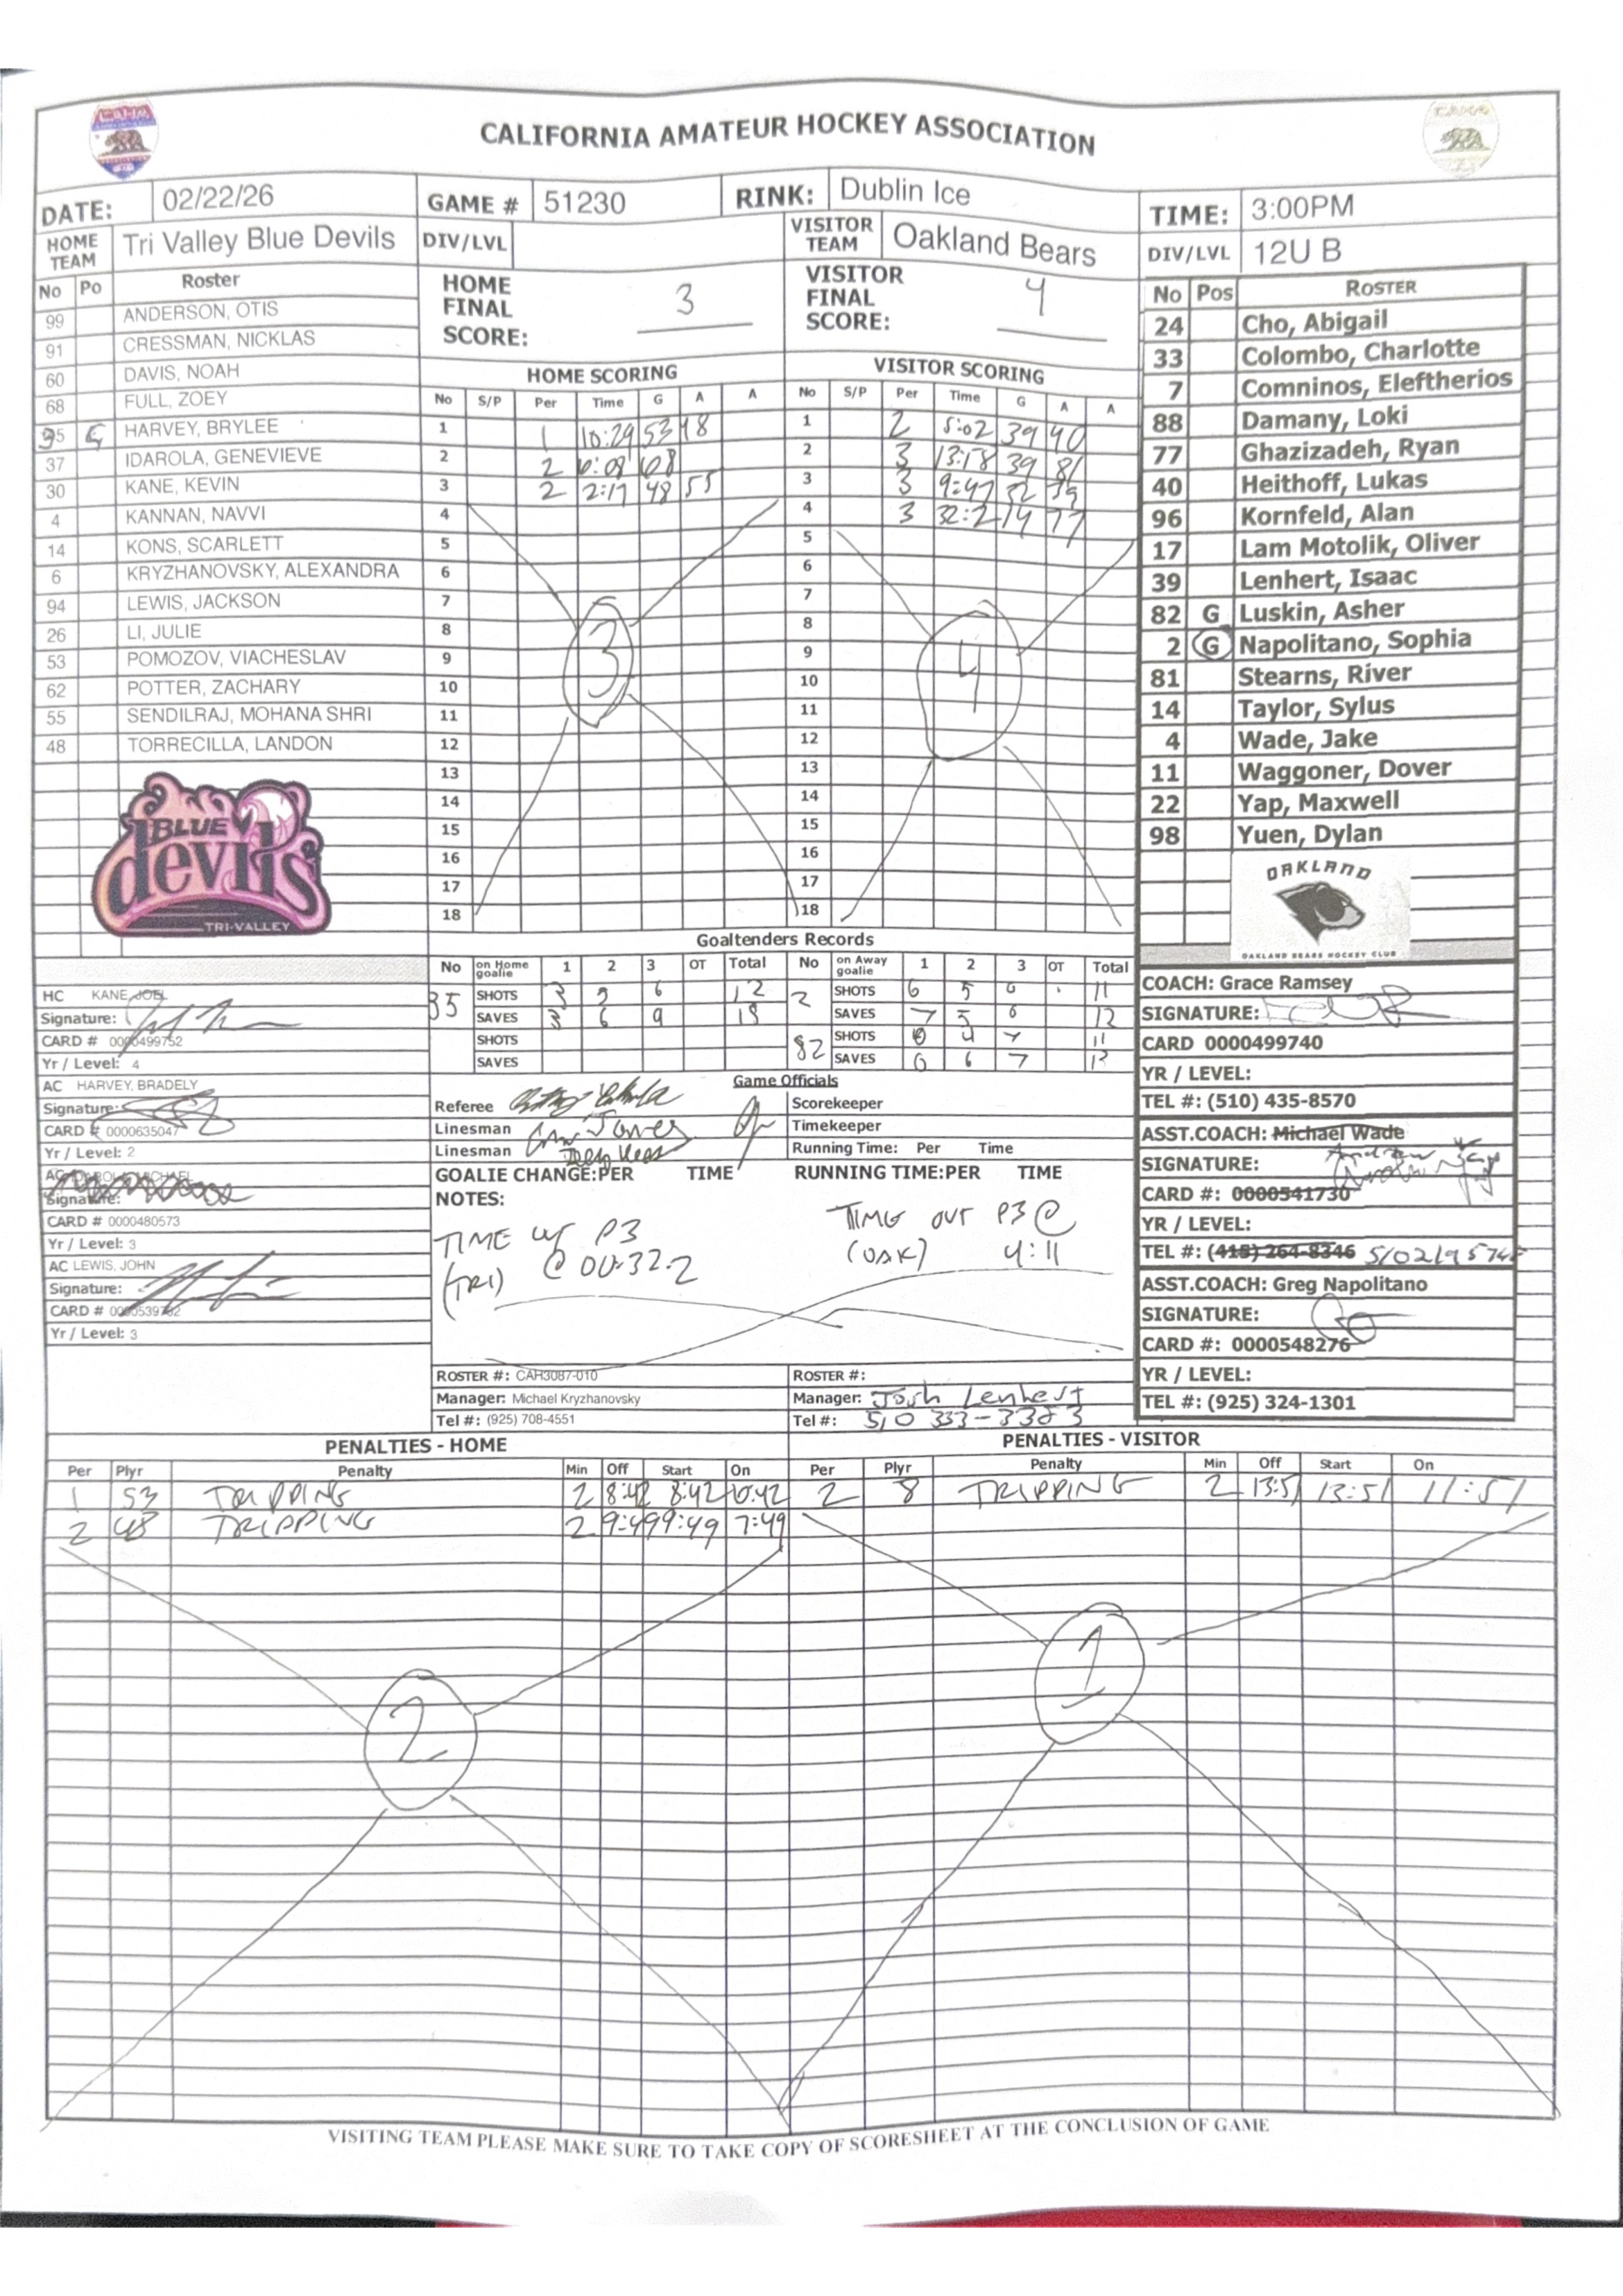 CALIFORNIA AMATEUR HOCKEY ASSOCIATION
DATE: 02/22/26 GAME # 51230 RINK: Dublin Ice TIME: 3:00PM
HOME TEAM Tri Valley Blue Devils DIV/LVL VISITOR TEAM Oakland Bears DIV/LVL 12U B
No Po Roster
99 ANDERSON, OTIS
91 CRESSMAN, NICKLAS
60 DAVIS, NOAH
68 FULL, ZOEY
35 G HARVEY, BRYLEE
37 IDAROLA, GENEVIEVE
30 KANE, KEVIN
4 KANNAN, NAVVI
14 KONS, SCARLETT
6 KRYZHANOVSKY, ALEXANDRA
94 LEWIS, JACKSON
26 LI, JULIE
53 POMOZOV, VIACHESLAV
62 POTTER, ZACHARY
55 SENDILRAJ, MOHANA SHRI
48 TORRECILLA, LANDON
BLUE
devils
TRI-VALLEY
HOME FINAL SCORE: 3
VISITOR FINAL SCORE: 4
HOME SCORING
No S/P Per Time G A A
1 1 10:29 53 48
2 2 6:08 68
3 2 2:17 48 55
4
5
6
7
8
9
10
11
12
13
14
15
16
17
18
3
VISITOR SCORING
No S/P Per Time G A A
1 2 5:02 39 40
2 3 13:18 39 81
3 3 9:47 32 39
4 3 32:2 14 77
5
6
7
8
9
10
11
12
13
14
15
16
17
18
4
No Pos ROSTER
24 Cho, Abigail
33 Colombo, Charlotte
7 Comninos, Eleftherios
88 Damany, Loki
77 Ghazizadeh, Ryan
40 Heithoff, Lukas
96 Kornfeld, Alan
17 Lam Motolik, Oliver
39 Lenhert, Isaac
82 G Luskin, Asher
2 G Napolitano, Sophia
81 Stearns, River
14 Taylor, Sylus
4 Wade, Jake
11 Waggoner, Dover
22 Yap, Maxwell
98 Yuen, Dylan
OAKLAND
OAKLAND BEARS HOCKEY CLUB
Goaltenders Records
No on Home goalie 1 2 3 OT Total No on Away goalie 1 2 3 OT Total
35 SHOTS 3 6 12 2 SHOTS 6 5 0 11
SAVES 3 6 9 18 SAVES 7 5 0 12
SHOTS 82 SHOTS 0 4 7 11
SAVES SAVES 0 6 7 13
HC KANE, JOEL
Signature:
CARD # 0000499752
Yr / Level: 4
AC HARVEY, BRADELY
Signature:
CARD # 0000635047
Yr / Level: 2
AC
Signature:
CARD # 0000480573
Yr / Level: 3
AC LEWIS, JOHN
Signature:
CARD #
Yr / Level: 3
Game Officials
Referee Scorekeeper
Linesman Timekeeper
Linesman Running Time: Per Time
GOALIE CHANGE:PER TIME RUNNING TIME:PER TIME
NOTES:
TIME P3
(TRI) @ 00:32.2
TIME OUT P3 @
(OAK) 4:11
ROSTER #: CAH3087-010 ROSTER #:
Manager: Michael Kryzhanovsky Manager: Josh Lenhert
Tel #: (925) 708-4551 Tel #: 510 333-3383
COACH: Grace Ramsey
SIGNATURE:
CARD 0000499740
YR / LEVEL:
TEL #: (510) 435-8570
ASST.COACH: Michael Wade
Andrew Yap
SIGNATURE:
CARD #: 0000541730
YR / LEVEL:
TEL #: (415) 264-8346
ASST.COACH: Greg Napolitano
SIGNATURE:
CARD #: 0000548276
YR / LEVEL:
TEL #: (925) 324-1301
PENALTIES - HOME
Per Plyr Penalty Min Off Start On
1 53 TRIPPING 2 8:42 8:42 6:42
2 48 TRIPPING 2 9:49 9:49 7:49
2
PENALTIES - VISITOR
Per Plyr Penalty Min Off Start On
2 8 TRIPPING 2 13:51 13:51 11:51
1
VISITING TEAM PLEASE MAKE SURE TO TAKE COPY OF SCORESHEET AT THE CONCLUSION OF GAME